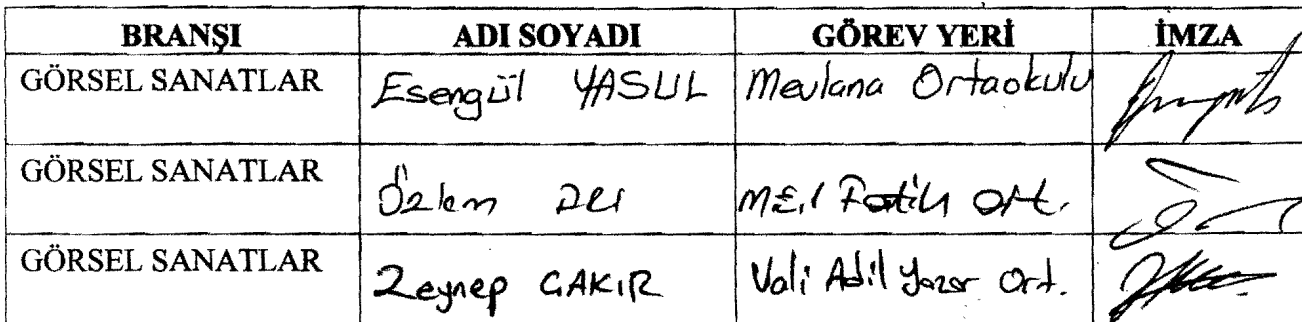 BRANŞI ADI SOYADI GÖREV YERİ İMZA
GÖRSEL SANATLAR Esengül YASUL Mevlana Ortaokulu
GÖRSEL SANATLAR Özlem Fatih Ort.
GÖRSEL SANATLAR Zeynep ÇAKIR Vali Adil Yazar Ort.